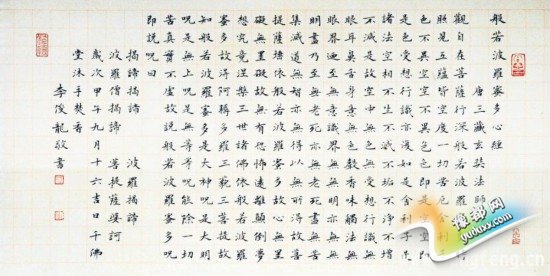 般若波羅蜜多心經
唐三藏玄奘法師
觀自在菩薩行深般若波羅
照見五蘊皆空度一切苦厄舍利子
色不異空空不異色色即是空空即
是色受想行識亦復如是舍利子是
諸法空相不生不滅不垢不淨不增
不減是故空中無色無受想行識無
眼耳鼻舌身意無色聲香味觸法無
眼界乃至無意識界無無明亦無無
明盡乃至無老死亦無老死盡無苦
集滅道無智亦無得以無所得故菩
提薩埵依般若波羅蜜多故心無罣
礙無罣礙故無有恐怖遠離顛倒夢
想究竟涅槃三世諸佛依般若波羅
蜜多故得阿耨多羅三藐三菩提故
知般若波羅蜜多是大神咒是大明
咒是無上咒是無等等咒能除一切
苦真實不虛故說般若波羅蜜多咒
即說咒曰
揭諦揭諦 波羅揭諦
波羅僧揭諦 菩提薩婆訶
歲次甲午九月十六吉日千佛
堂沐手焚香
李俊龍敬書
豫都网